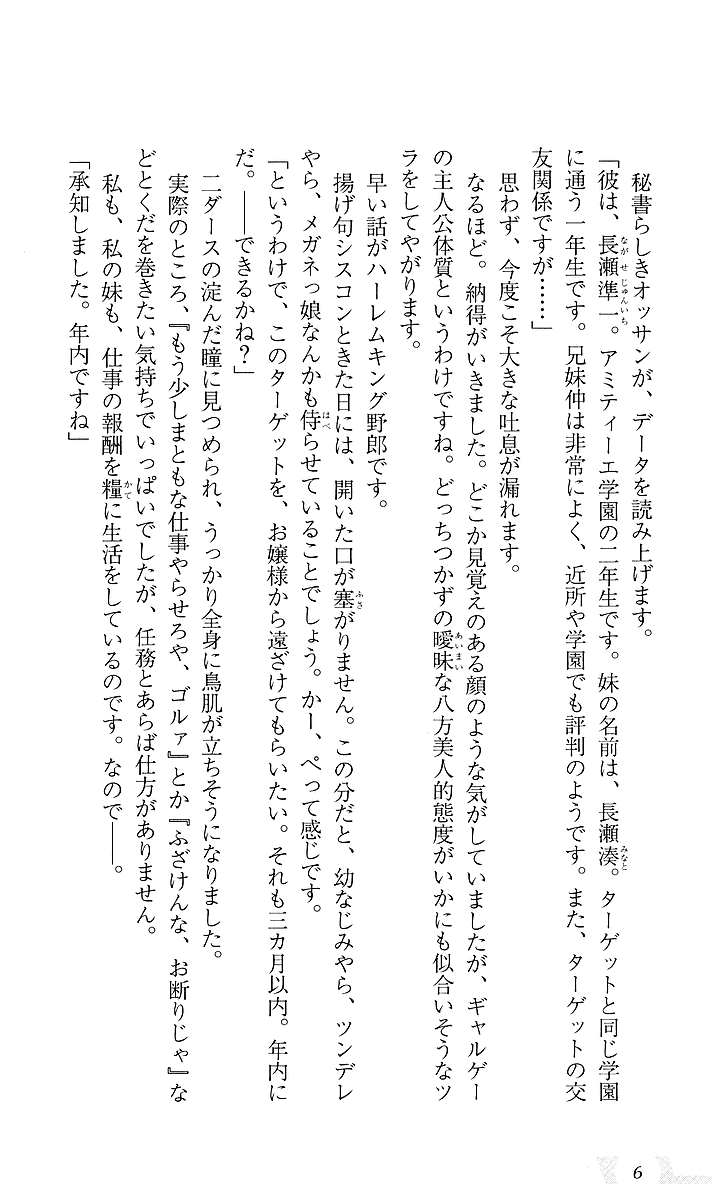 秘書らしきオッサンが、データを読み上げます。
「彼は、長瀬準一。アミティーエ学園の二年生です。妹の名前は、長瀬湊。ターゲットと同じ学園
に通う一年生です。兄妹仲は非常によく、近所や学園でも評判のようです。また、ターゲットの交
友関係ですが……」
思わず、今度こそ大きな吐息が漏れます。
なるほど。納得がいきました。どこか見覚えのある顔のような気がしていましたが、ギャルゲー
の主人公体質というわけですね。どっちつかずの曖昧な八方美人的態度がいかにも似合いそうなツ
ラをしてやがります。
早い話がハーレムキング野郎です。
揚げ句シスコンときた日には、開いた口が塞がりません。この分だと、幼なじみやら、ツンデレ
やら、メガネっ娘なんかも侍らせていることでしょう。かー、ぺって感じです。
「というわけで、このターゲットを、お嬢様から遠ざけてもらいたい。それも三カ月以内。年内に
だ。――できるかね？」
二ダースの淀んだ瞳に見つめられ、うっかり全身に鳥肌が立ちそうになりました。
実際のところ、『もう少しまともな仕事やらせろや、ゴルァ』とか『ふざけんな、お断りじゃ』な
どとくだを巻きたい気持ちでいっぱいでしたが、任務とあらば仕方がありません。
私も、私の妹も、仕事の報酬を糧に生活をしているのです。なので――。
「承知しました。年内ですね」
6